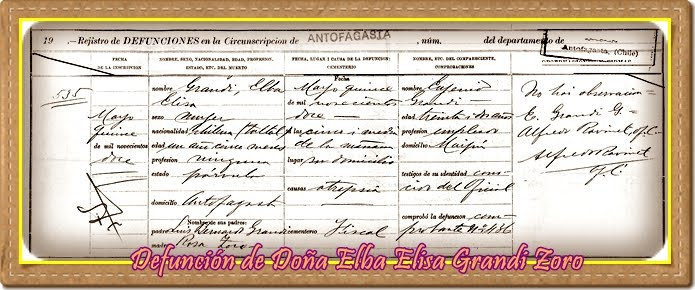 ANTOFAGASTA
19 .—Registro de DEFUNCIONES en la Circunscripcion de , núm. del departamento de
Antofagasta, (Chile)
FECHA DE LA INSCRIPCION
NOMBRE, SEXO, NACIONALIDAD, EDAD, PROFESION, ESTADO, ETC., DEL MUERTO
FECHA, LUGAR I CAUSA DE LA DEFUNCION: CEMENTERIO
NOMBRE, ETC. DEL COMPARECIENTE, COMPROBACIONES
535
Mayo
quince
de mil novecientos
doce
nombre Grandi, Elba
Elisa
sexo mujer
nacionalidad chilena
edad un año cinco meses
profesion ninguna
estado párvulo
domicilio Antofagasta
Nombre de sus padres:
padre Luis Bernardo Grandi
madre Rosa Zoro
Fecha
Mayo quince
de mil novecientos
doce
a las cinco i media
de la mañana
lugar su domicilio
causas atrepsia
cementerio Fiscal
nombre Eugenio
Grandi
edad treinta i
profesion empleado
domicilio Maipú
testigos de su identidad
del Oficial
comprobó la defuncion
No hai observacion
E. Grandi G.
Alfredo
Alfredo
Defunción de Doña Elba Elisa Grandi Zoro